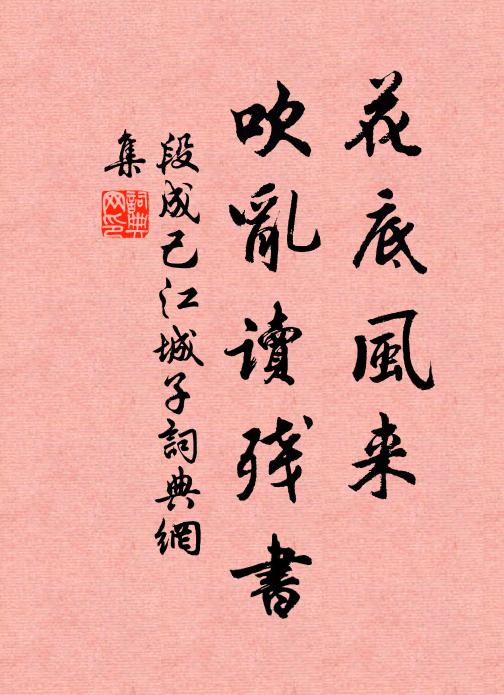 花底風来
吹亂讀残書
段成己江城子詞典網
集
詞典
网印